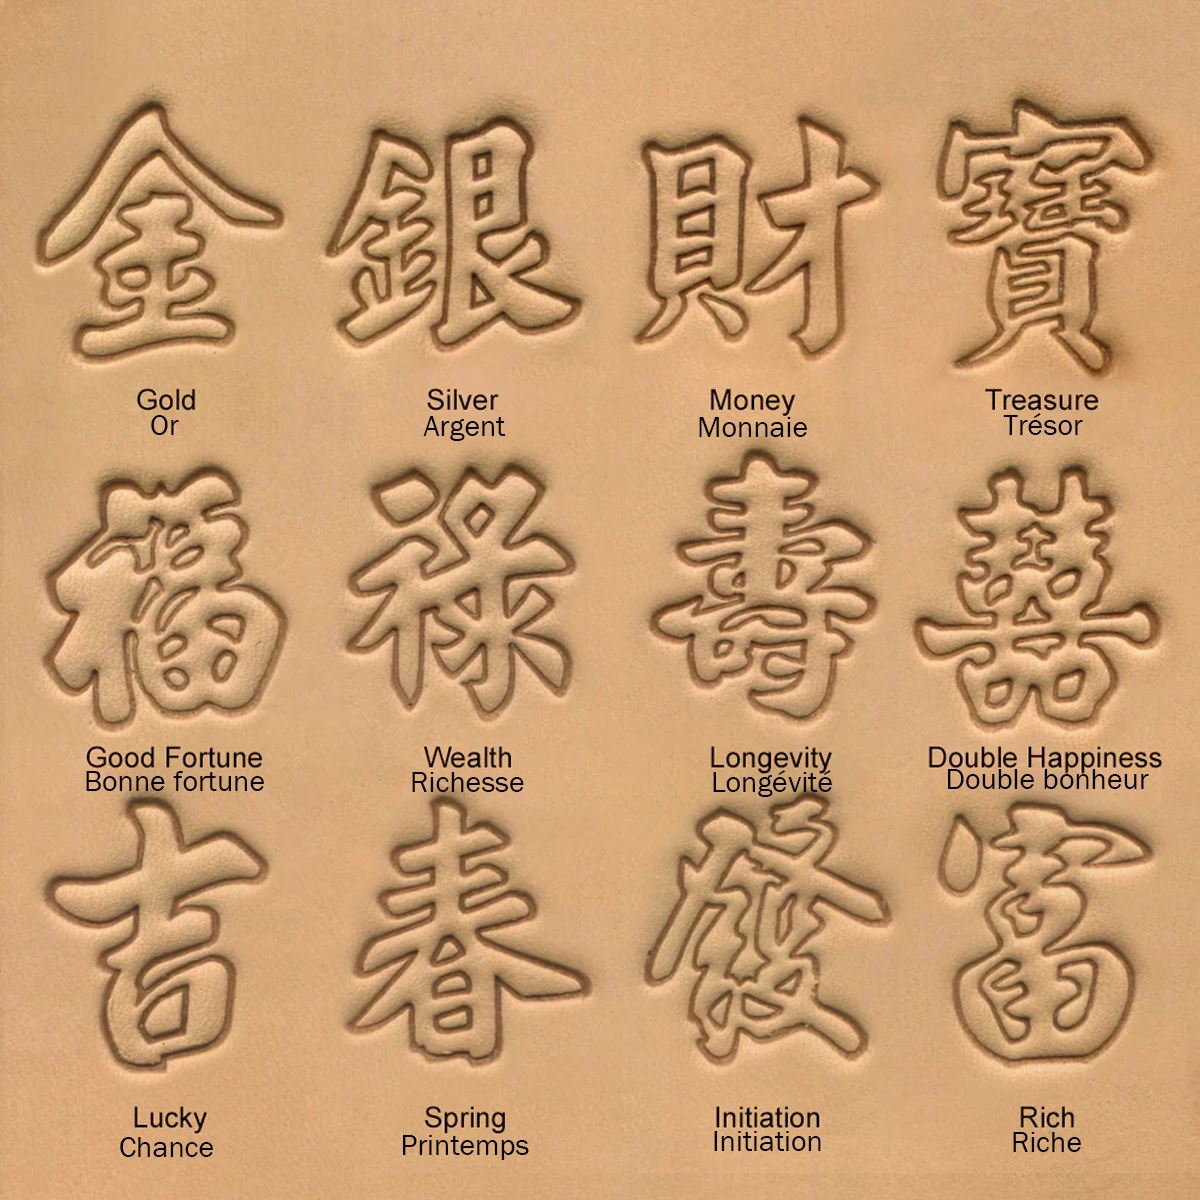 金 銀 財 寶
Gold Silver Money Treasure
Or Argent Monnaie Trésor
福 祿 壽 囍
Good Fortune Wealth Longevity Double Happiness
Bonne fortune Richesse Longévité Double bonheur
吉 春 發 富
Lucky Spring Initiation Rich
Chance Printemps Initiation Riche